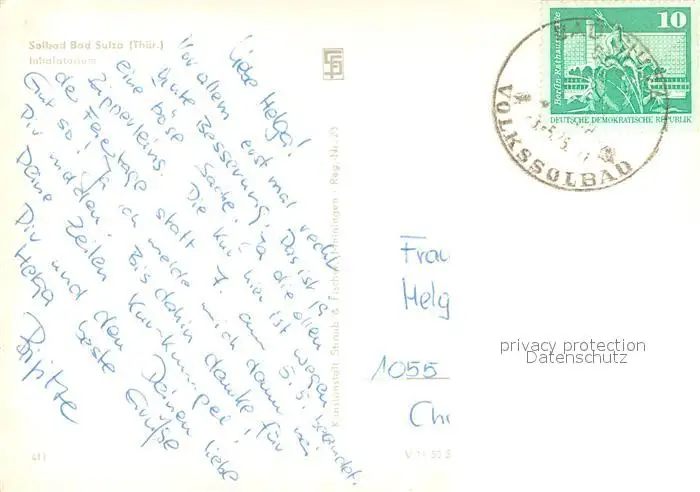 Solbad Bad Sulza (Thür.)
Inhalatorium
Liebe Helga!
Vor allem erst mal recht
gute Besserung! Das ist ja
eine böse Sache. Ja die ollen
Zipperleins. Die Kur hier ist wegen
der Feiertage statt 7. am 5.5. beendet.
Gut so! Ja ich melde mich dann bei
Dir und den! Bis dahin danke für
Deine Zeilen Kur-Kumpel!
Dir und den Deinen liebe
Helga beste Grüße
Brigitte
Kunstanstalt Straub & Fischer Meiningen Reg.-Nr. 23
411
V 11 50 S
10
Berlin-Rathausstraße
DEUTSCHE DEMOKRATISCHE REPUBLIK
BAD SULZA
VOLKSSOLBAD
Frau
Helg
1055
Chr
privacy protection
Datenschutz